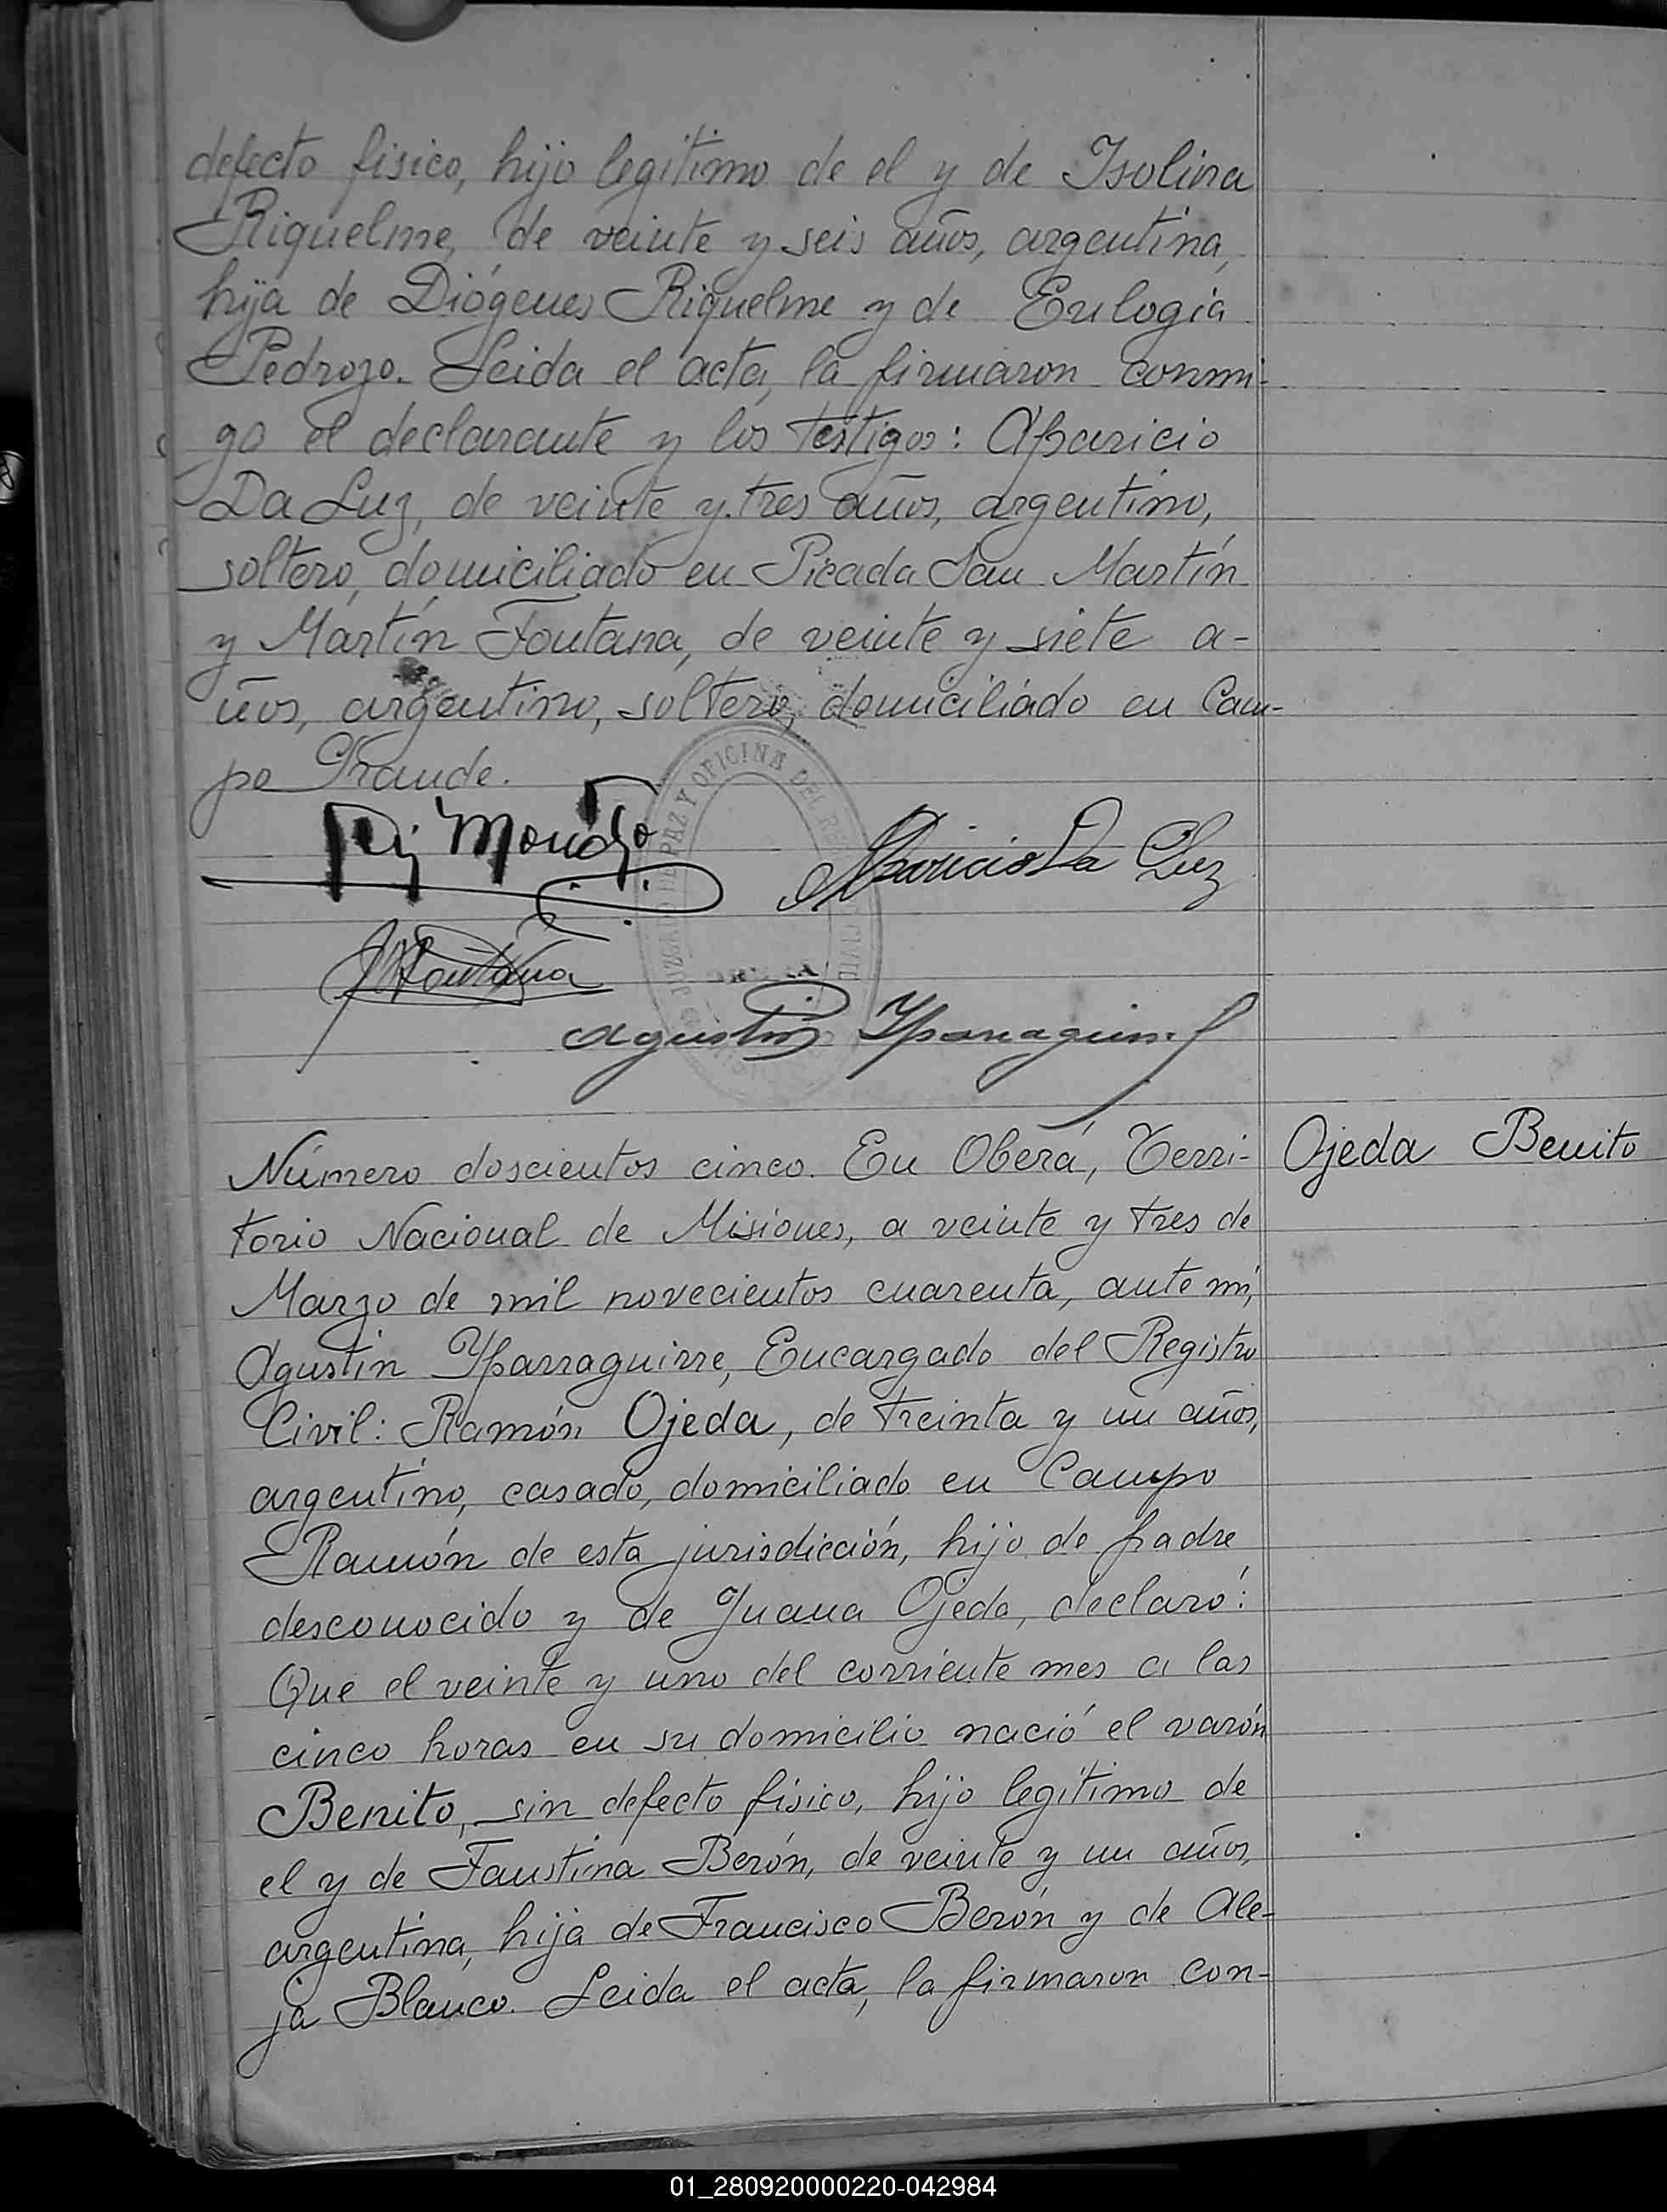 defecto fisico, hijo legítimo de el y de Isolina
Riquelme, de veinte y seis años, argentina,
hija de Diógenes Riquelme y de Eulogia
Pedrozo. Leida el acta, la firmaron conmi-
go el declarante y los testigos: Aparicio
Da Luz, de veinte y tres años, argentino,
soltero, domiciliado en Picada San Martín
y Martín Fontana, de veinte y siete a-
ños, argentino, soltero, domiciliado en Cam-
po Grande.
JUZGADO DE PAZ Y OFICINA DEL REGISTRO CIVIL
Aparicio Da Luz
MFontana
Agustin Yparraguirre
Número doscientos cinco. En Oberá, Terri-
Ojeda Benito
torio Nacional de Misiones, a veinte y tres de
Marzo de mil novecientos cuarenta, ante mí,
Agustin Yparraguirre, Encargado del Registro
Civil: Ramón Ojeda, de treinta y un años,
argentino, casado, domiciliado en Campo
Ramón de esta jurisdicción, hijo de padre
desconocido y de Juana Ojeda, declaró:
Que el veinte y uno del corriente mes a las
cinco horas en su domicilio nació el varón
Benito, sin defecto físico, hijo legítimo de
el y de Faustina Berón, de veinte y un años,
argentina, hija de Francisco Berón y de Ale-
ja Blanco. Leida el acta, la firmaron con-
01_280920000220-042984